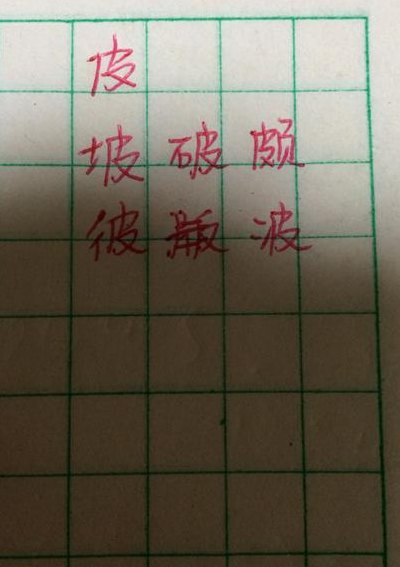 皮
坡破颇
彼 波